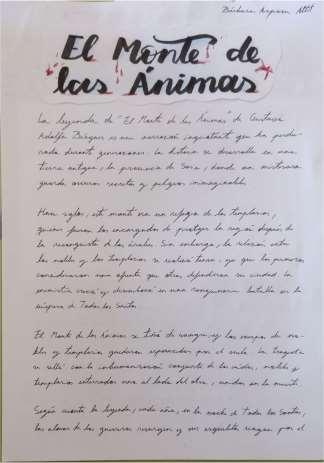 Bárbara
El Monte de
las Ánimas
La leyenda de "El Monte de las Ánimas" de Gustavo
Adolfo Bécquer es una narración inquietante que ha perdu-
rado durante generaciones. La historia se desarrolla en una
tierra antigua, la provincia de Soria, donde un misterioso
guarda oscuros secretos y peligros inimaginables.
Hace siglos, este monte era un refugio de los templarios,
quienes fueron los encargados de proteger la región después de
la reconquista de los árabes. Sin embargo, la relación entre
los nobles y los templarios se volvió tensa, ya que los primeros
consideraron una afrenta que otros defendieran su ciudad. La
enemistad creció y desembocó en una sangrienta batalla en la
víspera de Todos los Santos.
El Monte de las Ánimas se tiñó de sangre, y los cuerpos de no-
bles y templarios quedaron esparcidos por el suelo. La tragedia
se selló con la conjunta de los caídos, nobles y
templarios enterrados uno al lado del otro, unidos en la muerte.
Según cuenta la leyenda, cada año, en la noche de Todos los Santos,
las almas de los guerreros resurgen y sus esqueletos vagan por el